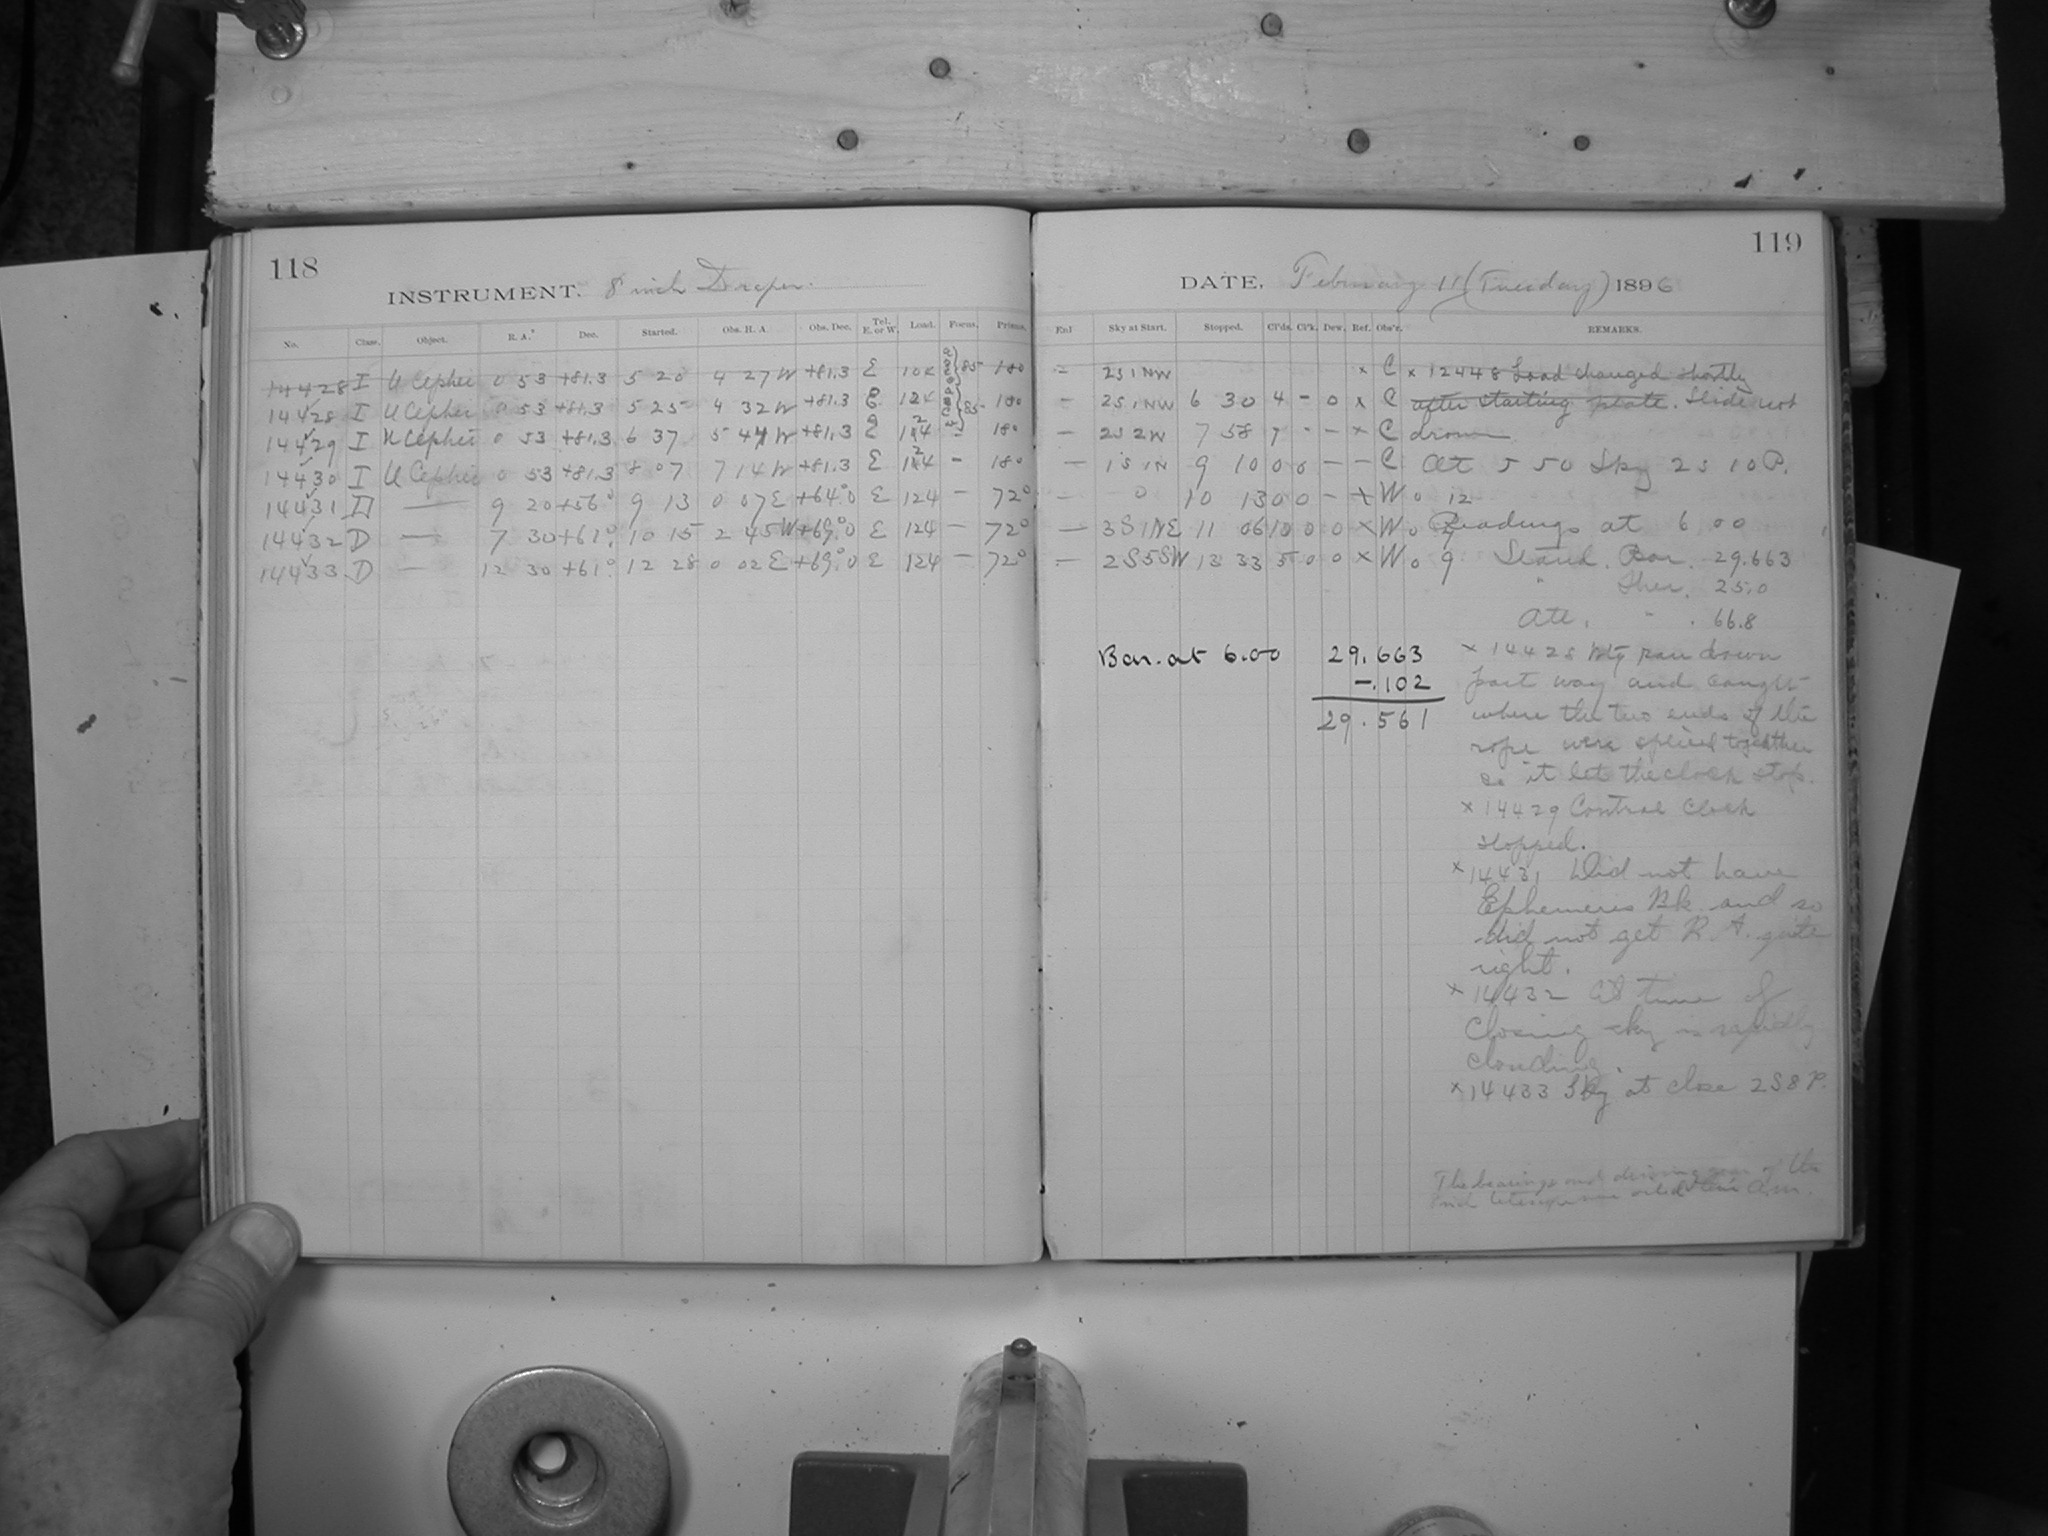 118
INSTRUMENT. 8 inch Draper.
No. Class. Object. R. A. Dec. Started. Obs. H. A. Obs. Dec. Tel. E. or W. Load. Focus. Prisms.
14428 I U Cephei 0 53 +81.3 5 20 4 27 W +81.3 E 85 180
14428 I U Cephei 0 53 +81.3 5 25 4 32 W +81.3 E 124 85 180
14429 I U Cephei 0 53 +81.3 6 37 5 44 W +81.3 E 124 – 180
14430 I U Cephei 0 53 +81.3 8 07 7 14 W +81.3 E 124 – 180
14431 II — 9 20 +56° 9 13 0 07 E +64°.0 E 124 – 72°
14432 D — 7 30 +61° 10 15 2 45 W +69°.0 E 124 – 72°
14433 D — 12 30 +61° 12 28 0 02 E +69°.0 E 124 – 72°
119
DATE, February 11 (Tuesday) 1896
Sky at Start. Stopped. Cl'ds. Cl'k. Dew. Ref. Obs'r. REMARKS.
– 2S1NW x C x 12448 Load changed shortly
– 2S1NW 6 30 4 – 0 x C after starting plate. Slide not
– 2S2W 7 58 7 – – x C drawn
– 1S1N 9 10 0 0 – – C At 5 50 Sky 2S10P.
– 0 10 13 0 0 – x W 0 12
– 3S1NE 11 06 10 0 0 x W 0 Readings at 6 00
– 2S5SW 13 33 5 0 0 x W 0 9 Stand. Bar. 29.663
" Ther. 25.0
Att. " . 66.8
Bar. at 6.00 29.663
–.102
29.561
x 14428 Wt ran down
part way and caught
where the two ends of the
rope were spliced together
so it let the clock stop.
x 14429 Control Clock
stopped.
x 14431 Did not have
Ephemeris Bk and so
did not get R. A. quite
right.
x 14432 At time of
Closing sky is rapidly
clouding.
x 14433 Sky at close 2S8P.
The bearings and driving gear of the